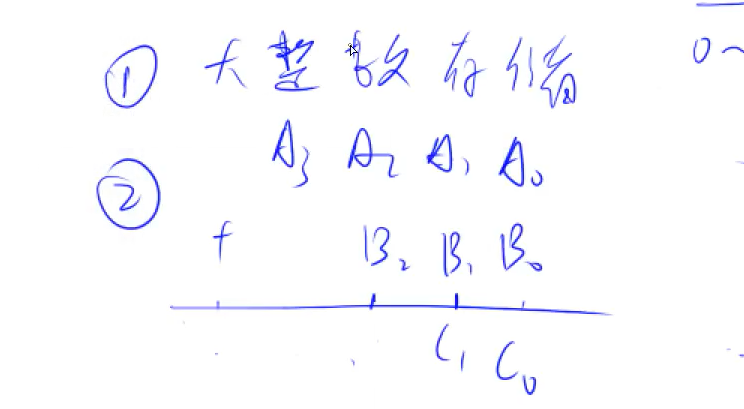 ① 大整数存储 0~
A₃ A₂ A₁ A₀
②
+ B₂ B₁ B₀
C₁ C₀